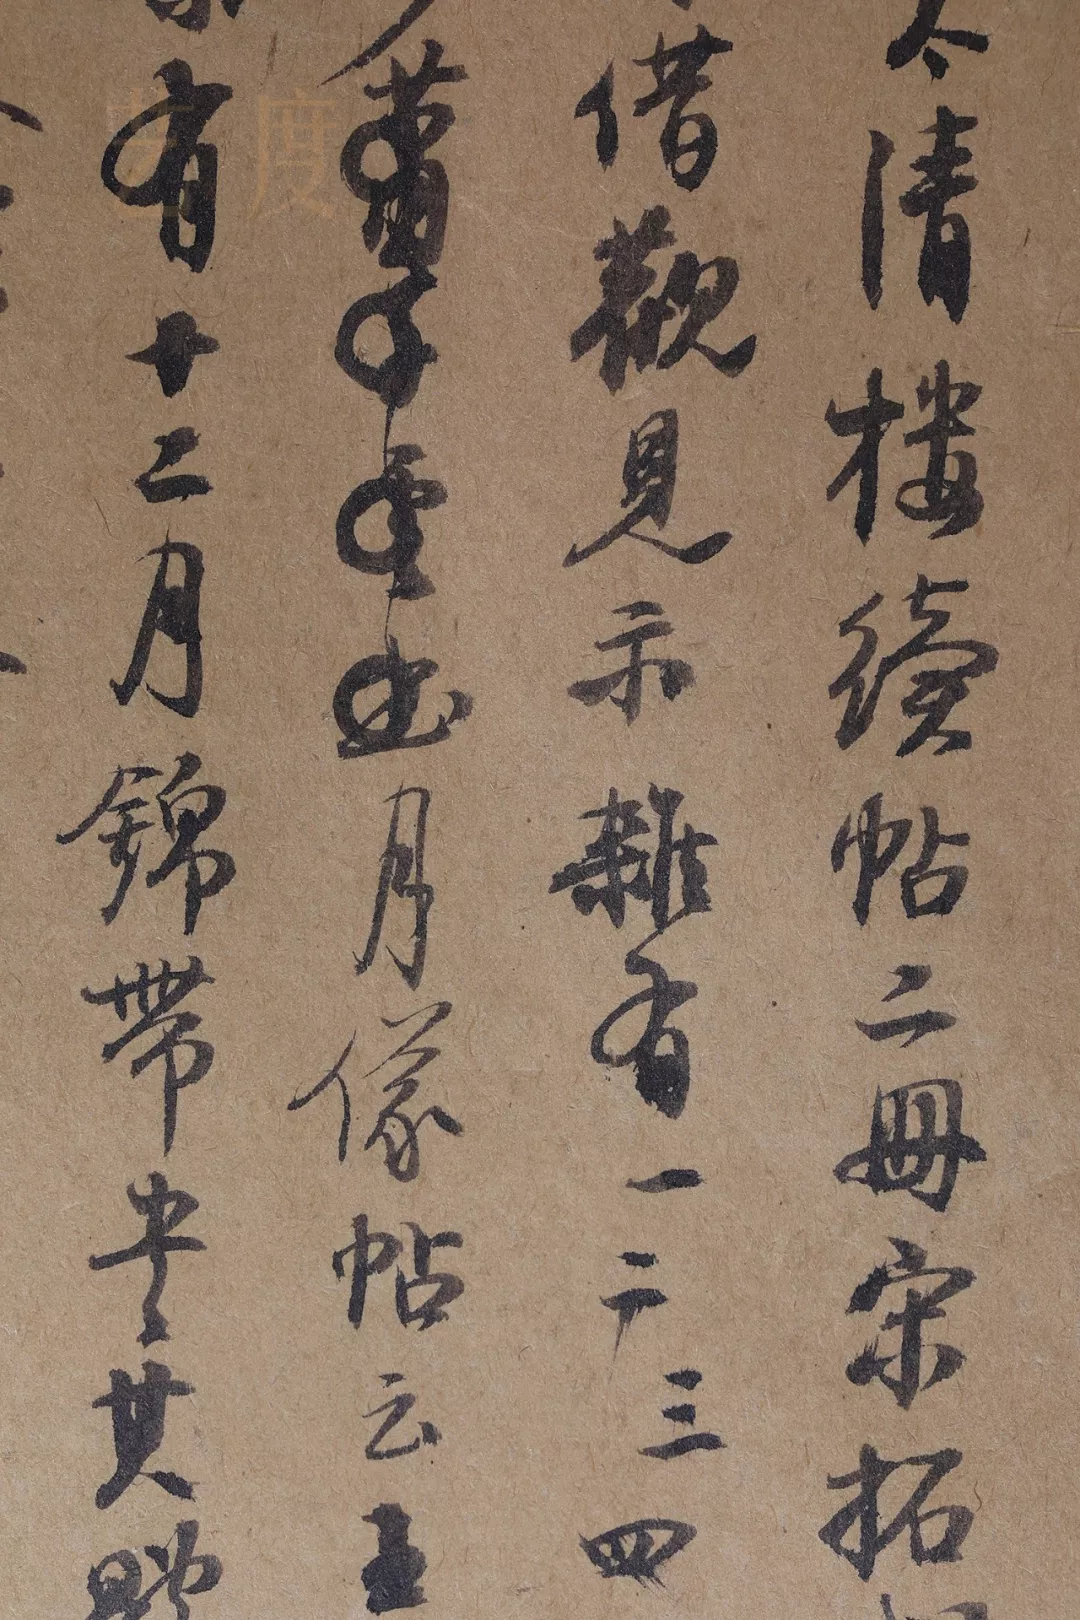 太清樓續帖二冊宋拓
借觀見示雖有一二三四
月儀帖云王
有十二月錦帶書其